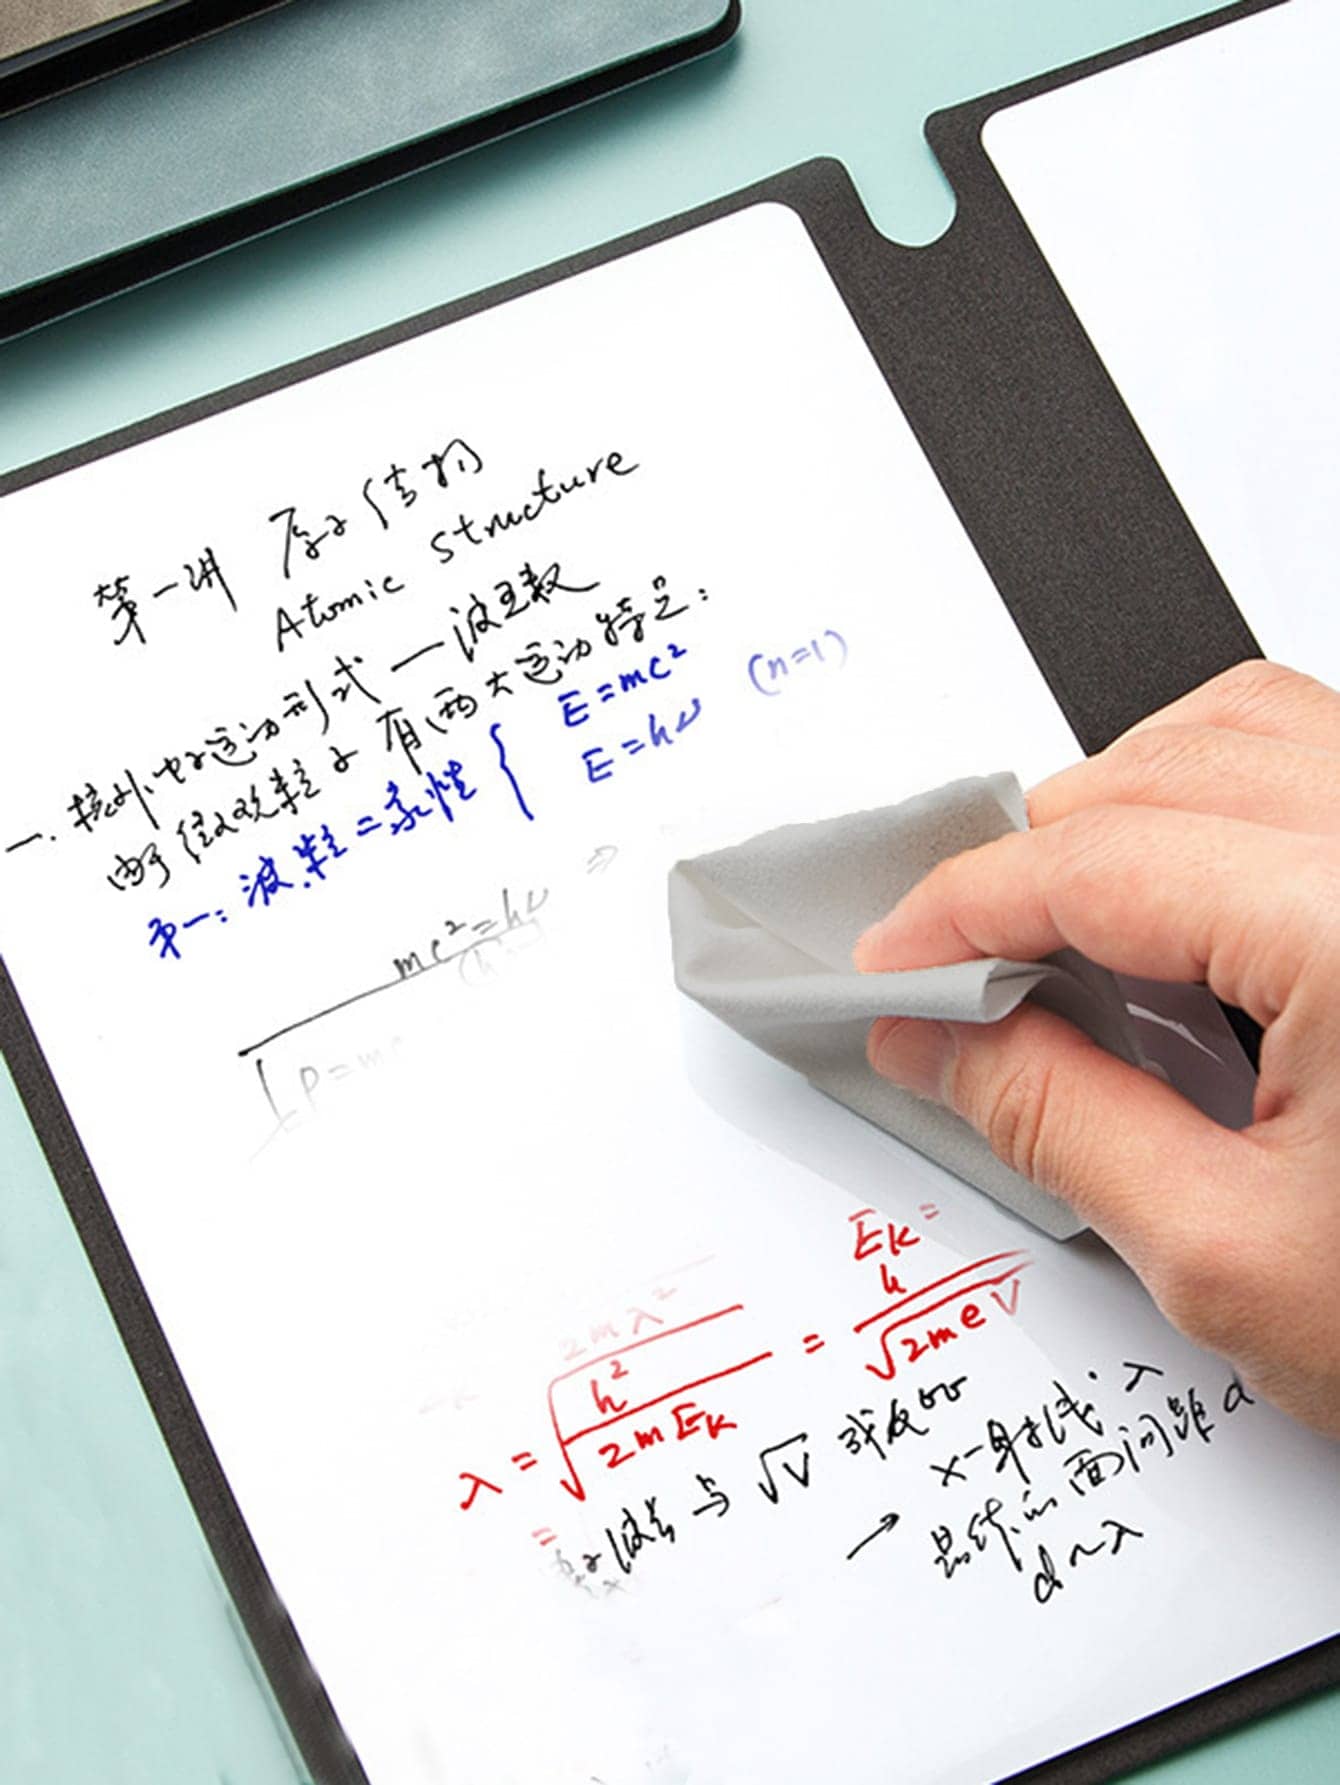 第一讲 原子结构
Atomic Structure
一. 核外电子运动形式 — 波函数
由于微观粒子有两大运动特点:
第一: 波.粒二象性 { E=mc²
E=hν (n=1)
mc²=hν ⇒
P=mc
2mλ²
Eₖ=
λ=√(h²/2mEₖ) = h/√(2meV)
=
波长与√V 成反比
X-射线 λ
→ 晶体的面间距 d
d~λ